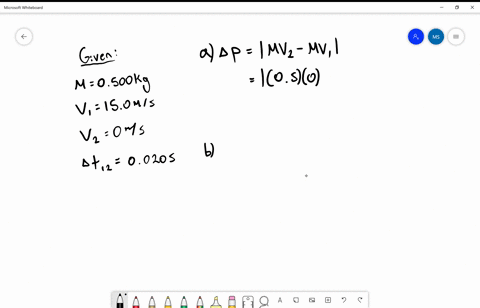 Microsoft Whiteboard
MS
Given:
M = 0.500kg
V₁ = 15.0 m/s
V₂ = 0 m/s
Δt₁₂ = 0.020s
a) Δp = |MV₂ - MV₁|
= |(0.5)(0)
b)